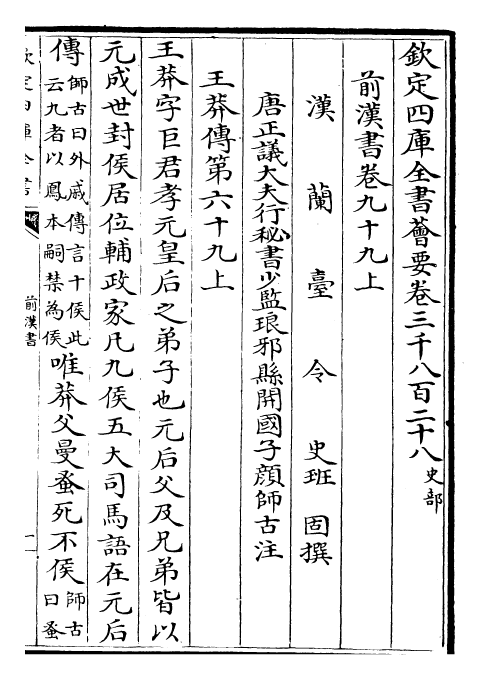 欽定四庫全書薈要卷三千八百二十八史部
前漢書卷九十九上
漢蘭臺令史班固撰
唐正議大夫行秘書少監琅邪縣開國子顏師古注
王莽傳第六十九上
王莽字巨君孝元皇后之弟子也元后父及兄弟皆以
元成世封侯居位輔政家凡九侯五大司馬語在元后
傳師古曰外戚傳言十侯此云九者以鳳本嗣禁為侯唯莽父曼蚤死不侯師古曰蚤
欽定四庫全書
前漢書
一